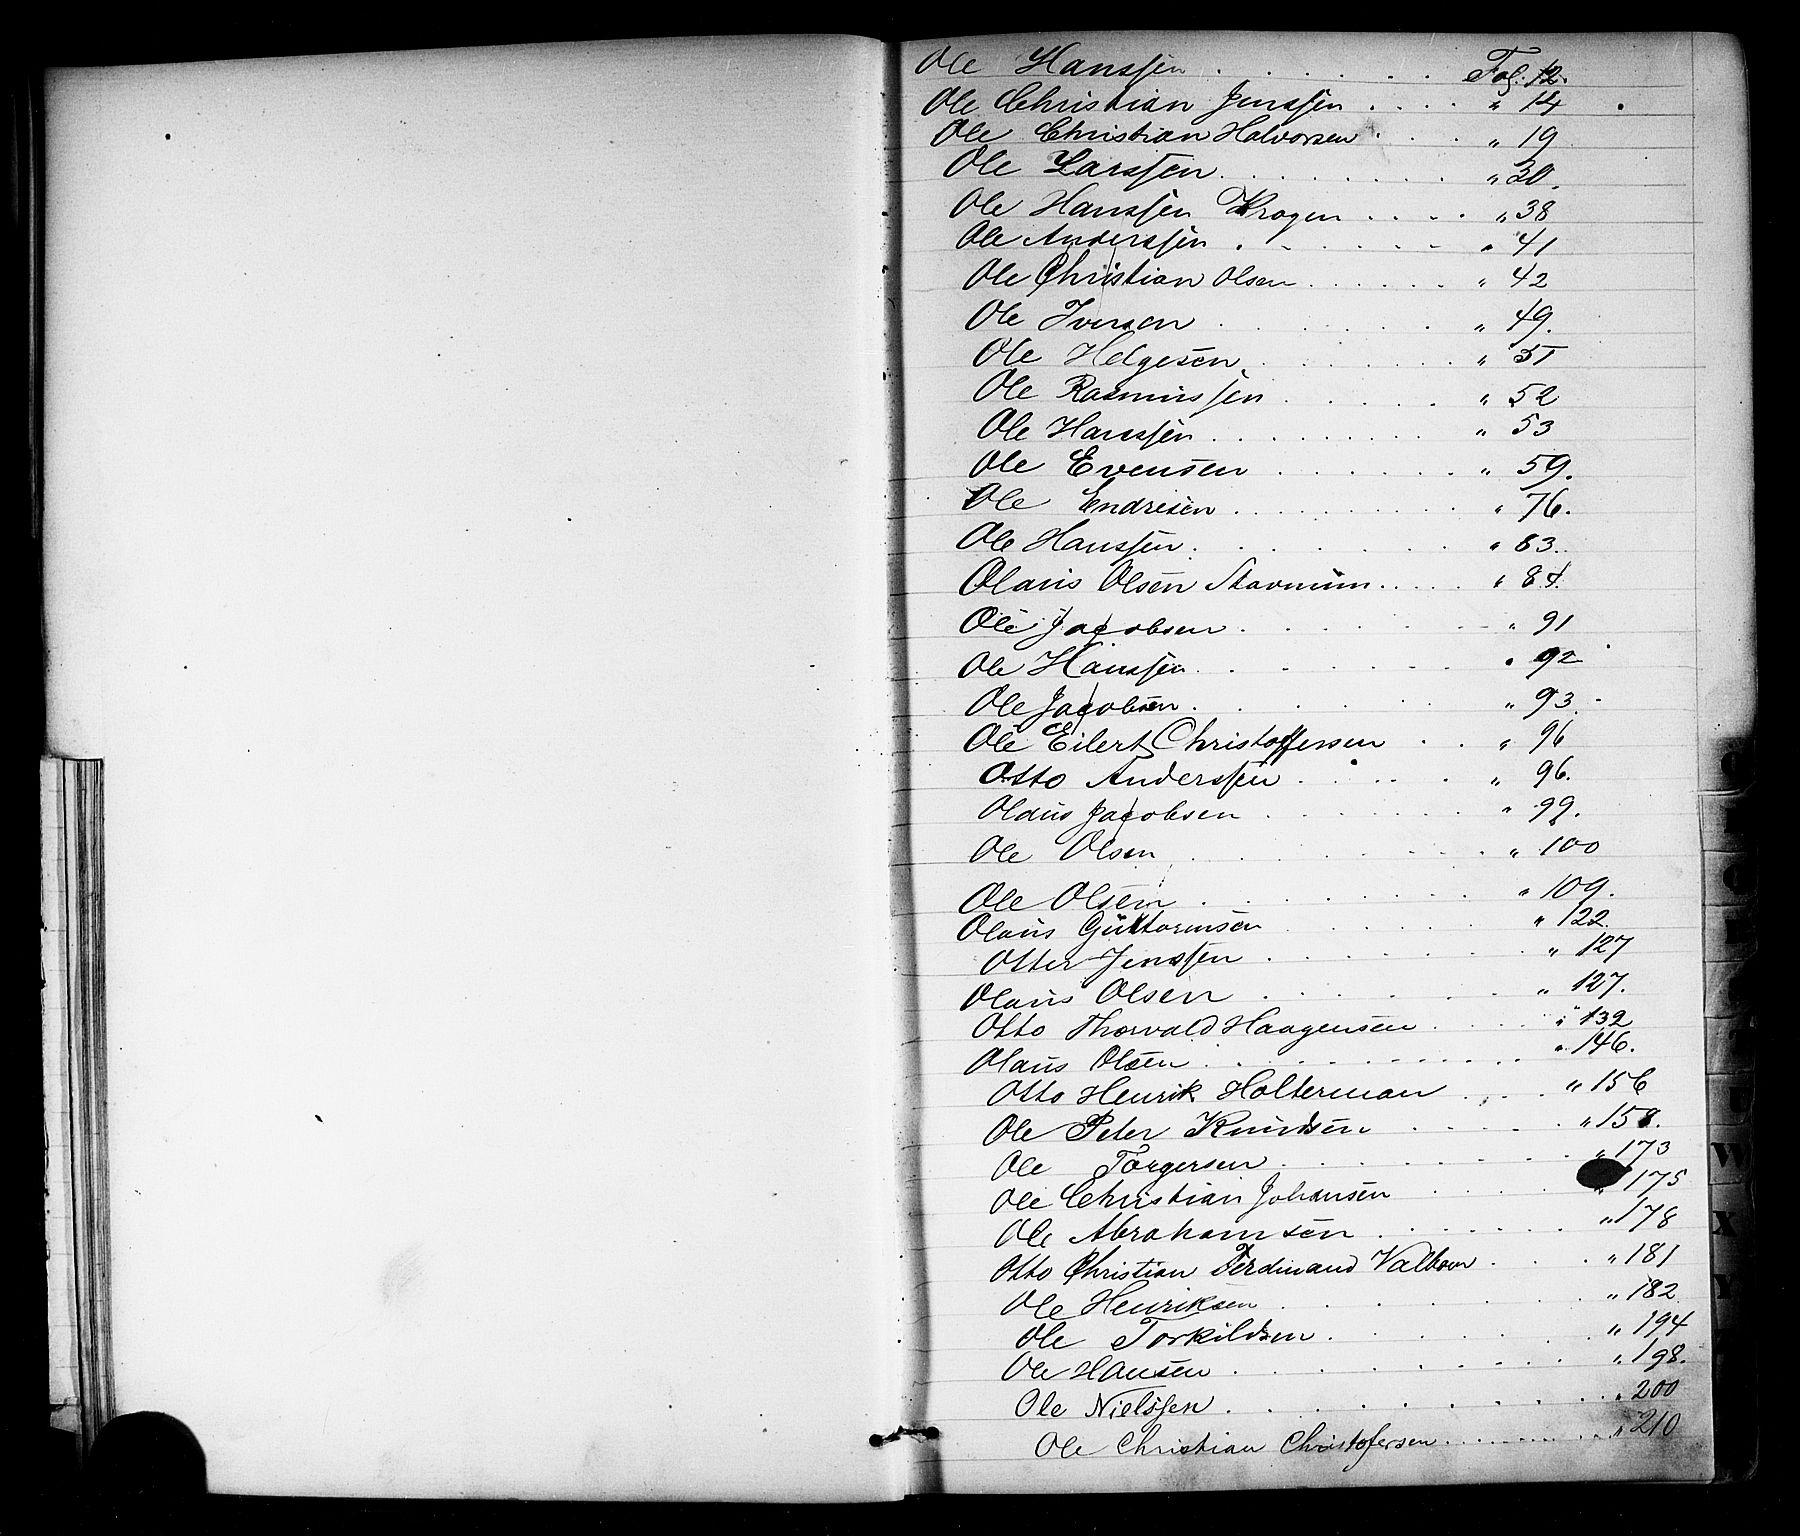 Ole Hanssen . . . . . . Fol. 12.
Ole Christian Jenssen . . . . " 14
Ole Christian Halvorsen . . . . " 19
Ole Larssen . . . . . . . . " 30.
Ole Hanssen Krogen . . . . " 38
Ole Anderssen . . . . . . " 41
Ole Christian Olsen . . . . . . " 42
Ole Iversen . . . . . . . " 49.
Ole Helgesen . . . . . . . "
Ole Rasmussen . . . . . " 52
Ole Hanssen . . . . . . . " 53
Ole Evensen . . . . . . " 59.
Ole Endresen . . . . . . . . " 76.
Ole Hanssen . . . . . . . " 83.
Olaus Olsen Stavnum . . . . " 84.
Ole Jacobsen . . . . . . " 91
Ole Hanssen . . . . . . . " 92
Ole Jacobsen . . . . . . " 93.
Ole Eilert Christoffersen . . " 96
Otto Anderssen . . . . . " 96.
Olaus Jacobsen . . . . . . . " 99.
Ole Olsen . . . . . . . . " 100
Ole Olsen . . . . . . . . " 109.
Olaus Guttormsen . . . . . . " 122.
Otter Jenssen . . . . . . . " 127
Olaus Olsen . . . . . . . " 127.
Otto Thorvald Haagensen . . . . " 132
Olaus Olsen . . . . . . . . . " 146.
Otto Henrik Holterman . . . . " 156
Ole Peter Knudsen . . . . . " 158.
Ole Torgersen . . . . . . . . " 173
Ole Christian Johansen . . . . " 175
Ole Abrahamsen . . . . . . " 178
Otto Christian Ferdinand . . . . " 181
Ole Henriksen . . . . . . . . " 182
Ole Torkildsen . . . . . . . " 194
Ole Hansen . . . . . . . . . " 198.
Ole Nielssen . . . . . . . . . " 200
Ole Christian Christofersen . . . . . . . " 210
W
X
Y